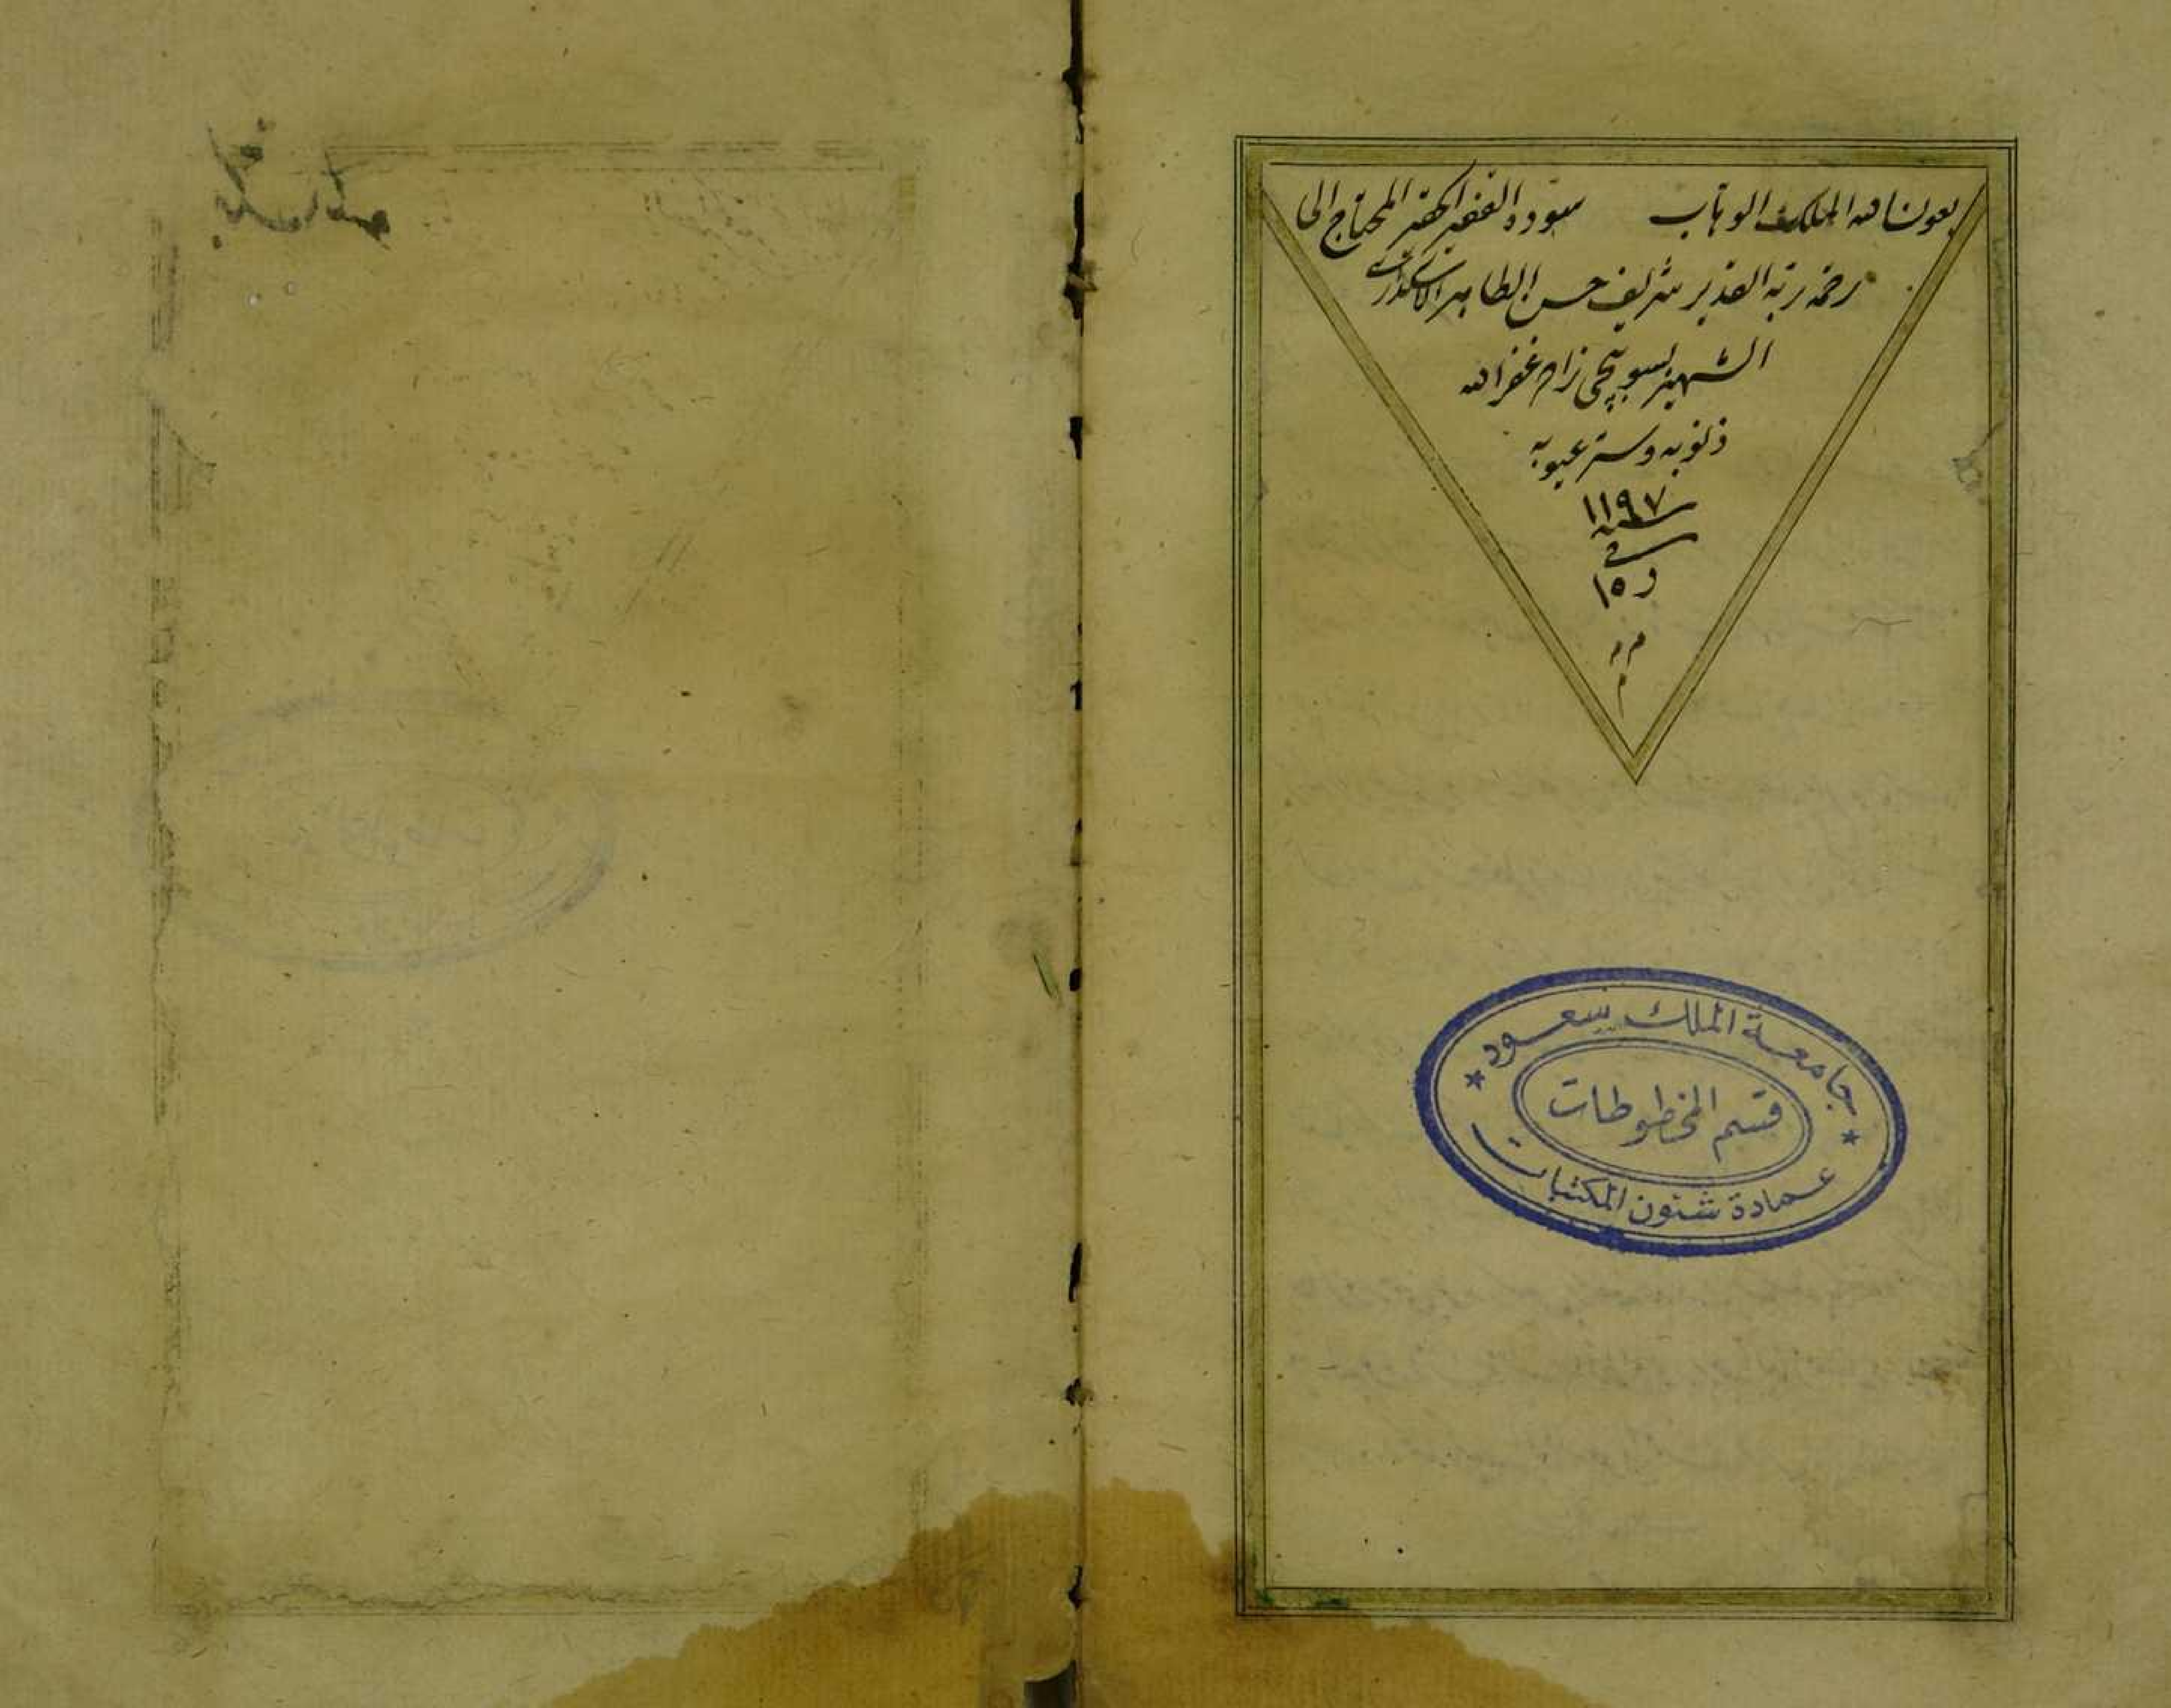 بعون الله الملك الوهاب سوده الفقير الحقير المحتاج الى
رحمة ربه القدير شريف حسن الطاهر الاسكدارى
الشهير زاده غفر الله
ذنوبه وستر عيوبه
سنه ١١٩٧
فى
١٥ ر
جامعة الملك سعود
قسم المخطوطات
عمادة شئون المكتبات